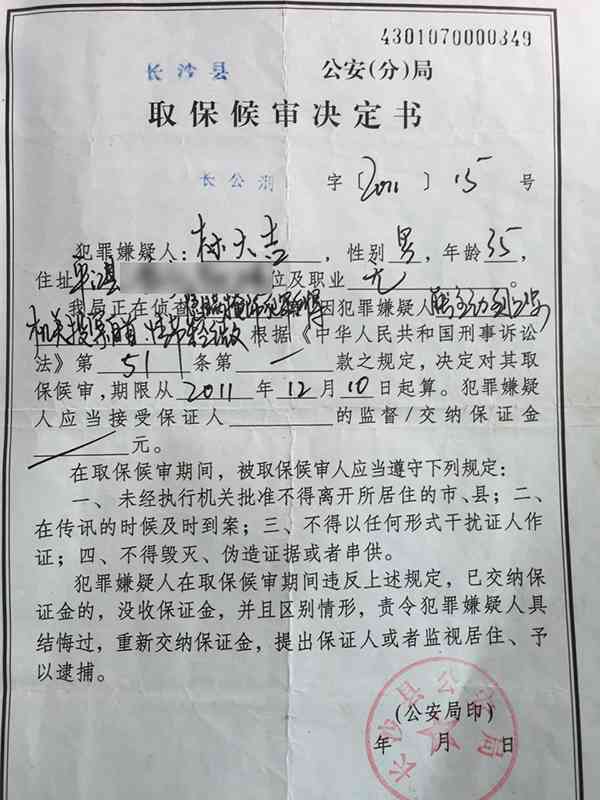 4301070000349
长沙县 公安(分)局
取保候审决定书
长公刑 字〔2011〕15号
犯罪嫌疑人:林大吉,性别男,年龄35,
住址 位及职业无。
我局正在侦查 因犯罪嫌疑人
机关投案自首 根据《中华人民共和国刑事诉讼
法》第51条第一款之规定,决定对其取
保候审,期限从2011年12月10日起算。犯罪嫌疑
人应当接受保证人 的监督/交纳保证金
元。
在取保候审期间,被取保候审人应当遵守下列规定:
一、未经执行机关批准不得离开所居住的市、县;二、
在传讯的时候及时到案;三、不得以任何形式干扰证人作
证;四、不得毁灭、伪造证据或者串供。
犯罪嫌疑人在取保候审期间违反上述规定,已交纳保
证金的,没收保证金,并且区别情形,责令犯罪嫌疑人具
结悔过,重新交纳保证金,提出保证人或者监视居住、予
以逮捕。
(公安局印)
年 月 日
长沙县公安局